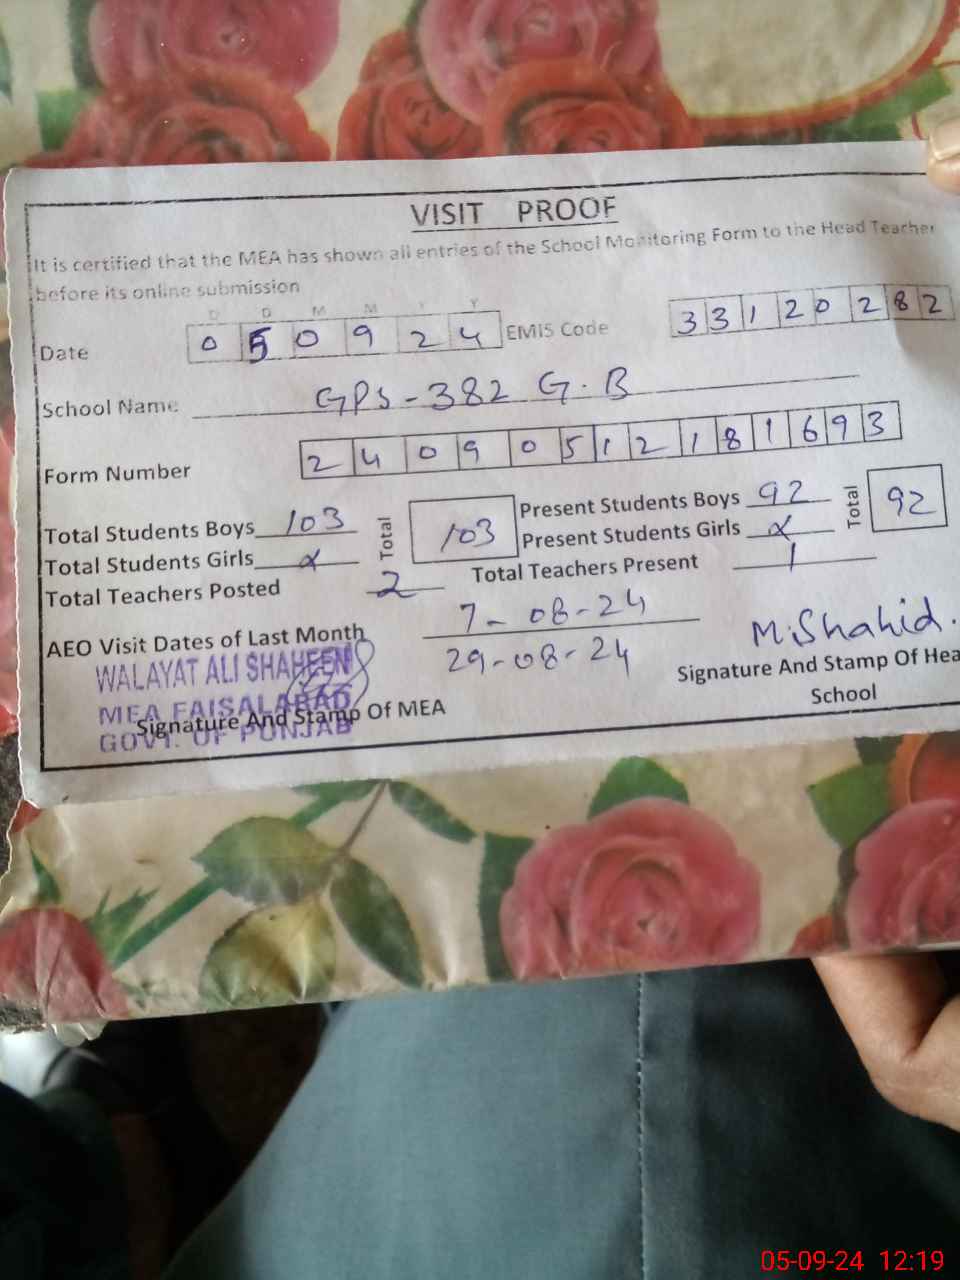 VISIT PROOF
It is certified that the MEA has shown all entries of the School Monitoring Form to the Head Teacher
before its online submission
D D M M Y Y
Date 0 5 0 9 2 4 EMIS Code 3 3 1 2 0 2 8 2
School Name GPS-382 G.B
Form Number 2 4 0 9 0 5 1 2 1 8 1 6 9 3
Total Students Boys 103 Total 103 Present Students Boys 92 Total 92
Total Students Girls x Present Students Girls x
Total Teachers Posted 2 Total Teachers Present 1
AEO Visit Dates of Last Month 7-08-24
29-08-24
M.Shahid.
WALAYAT ALI SHAHEEN
MEA FAISALABAD
GOVT. OF PUNJAB
Signature And Stamp Of MEA
Signature And Stamp Of Hea
School
05-09-24 12:19